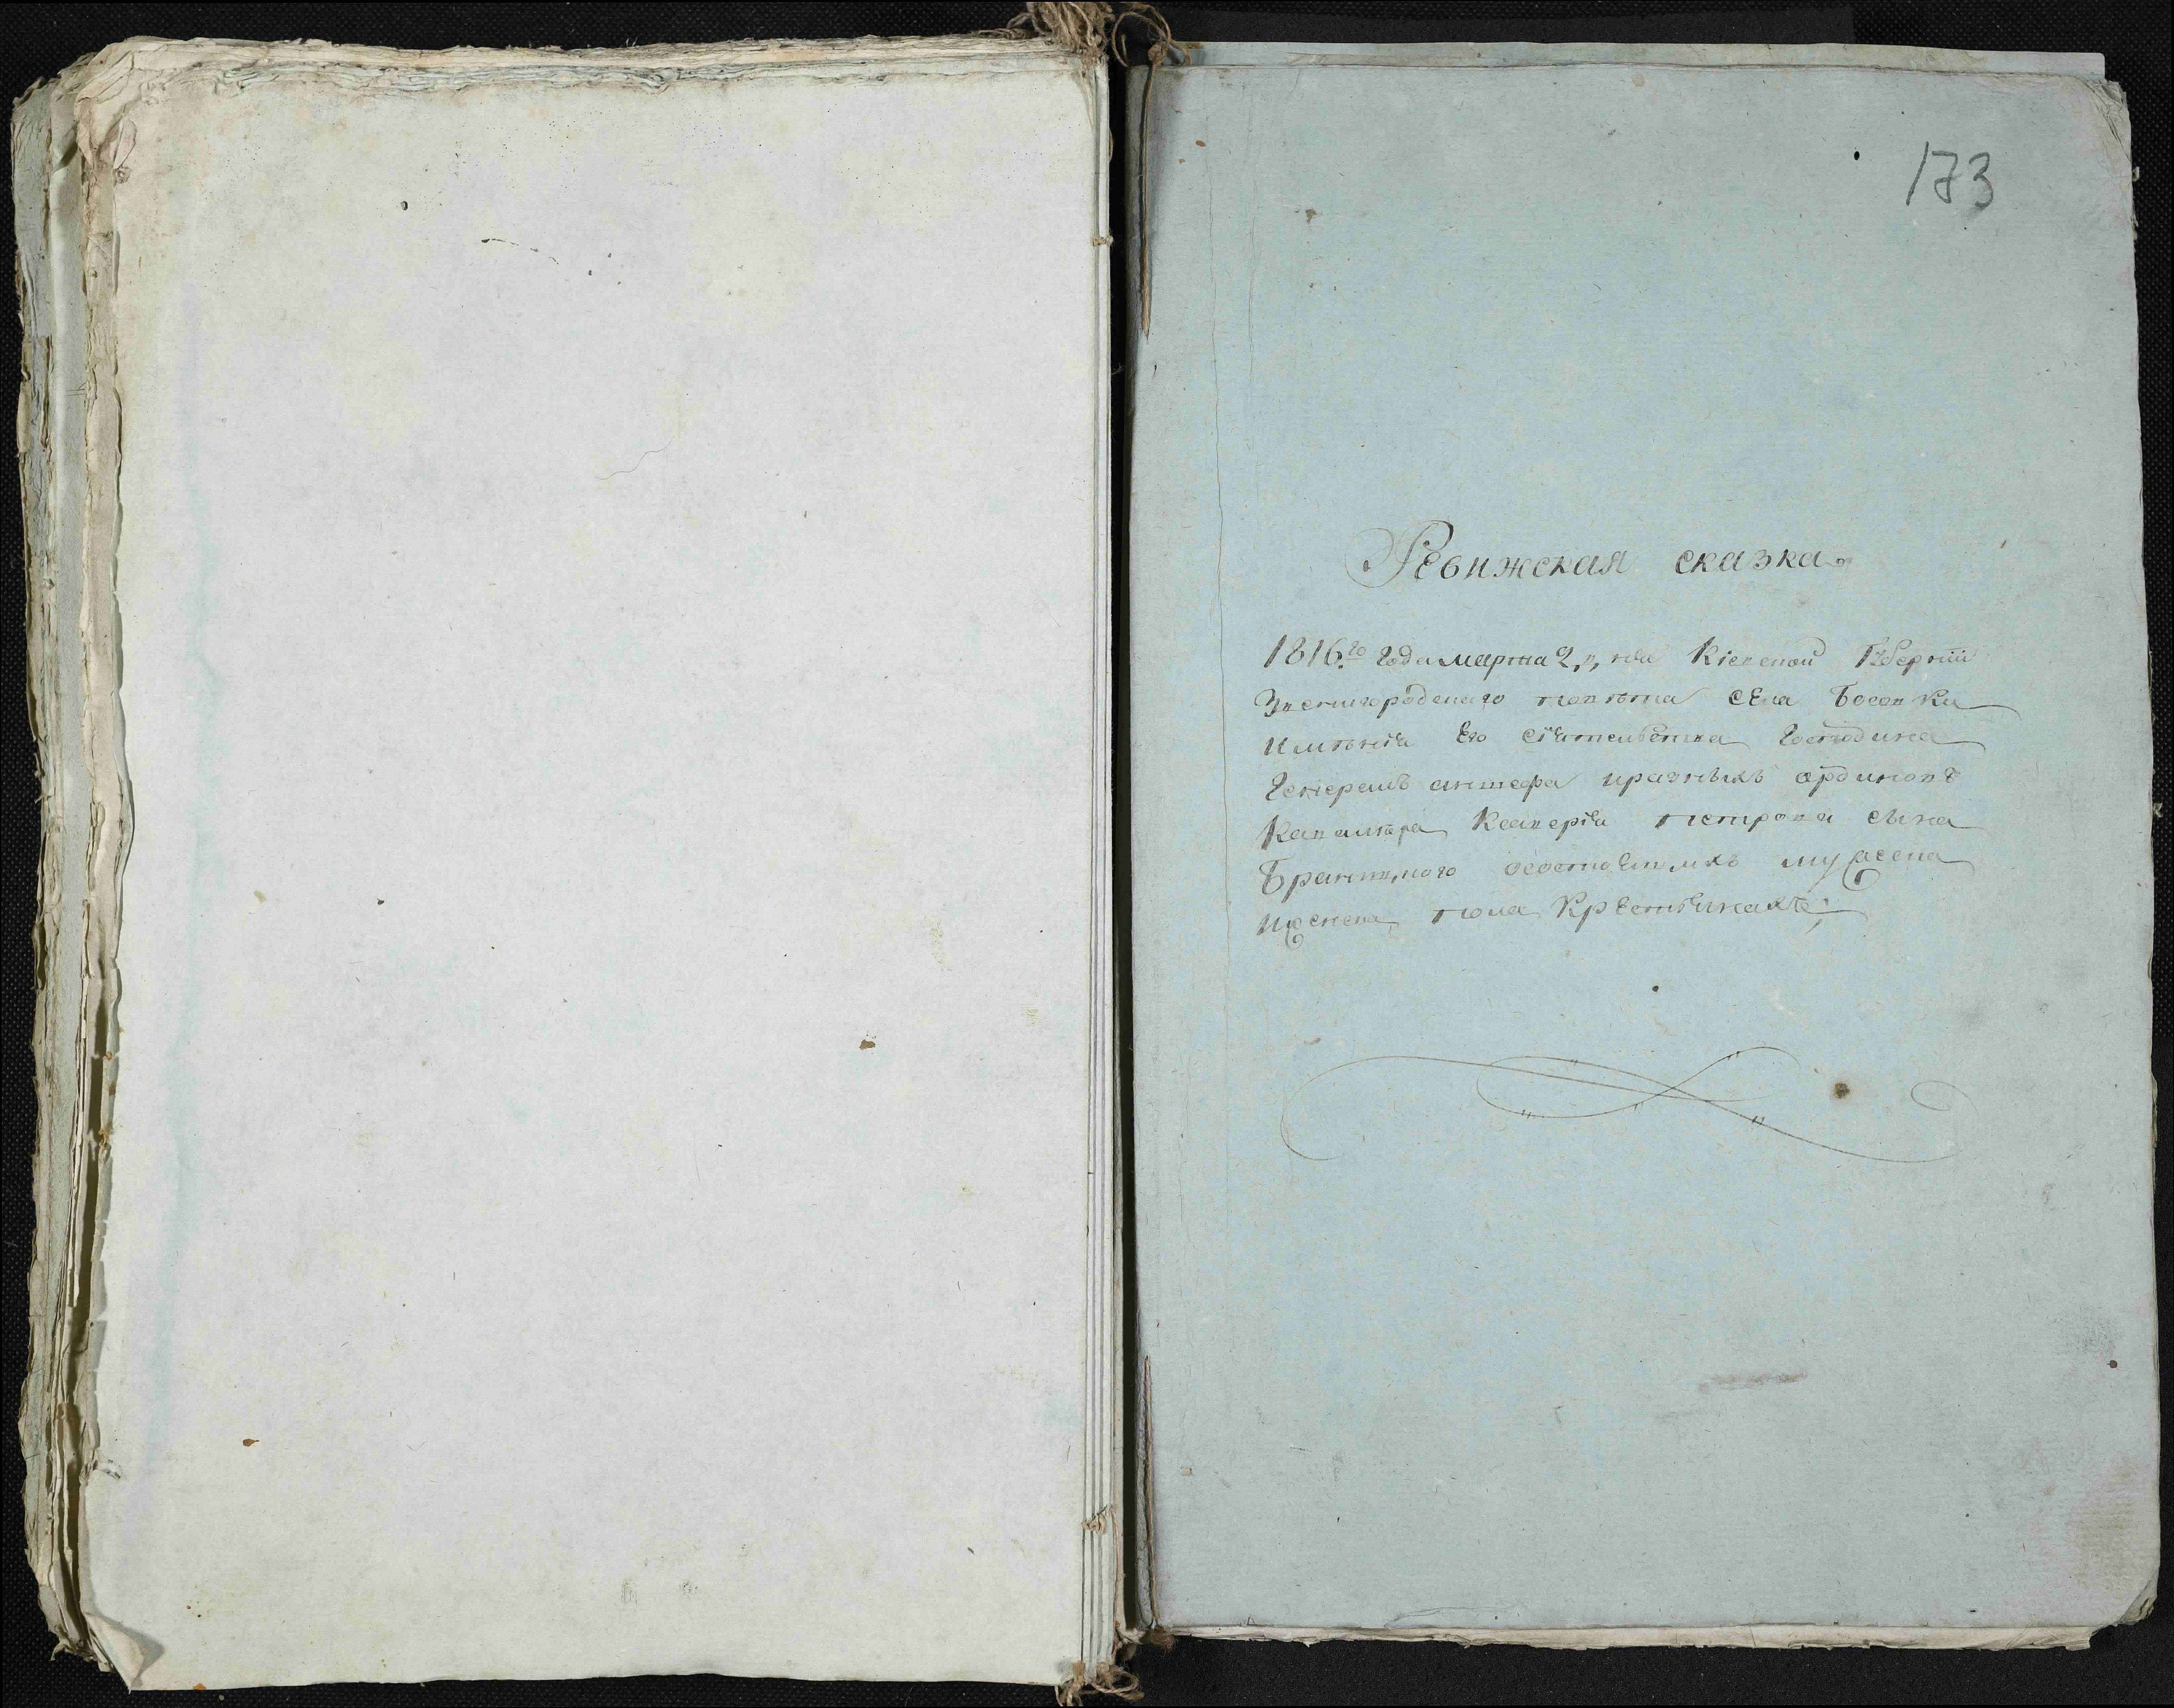 173
Ревижская сказка
1816го года марта 2„ дня Кіевской Губерніи
Звенигородскаго повѣта села Босовки
имѣнія Его сіятельства Господина
Генералъ аншефа иразныхъ ординовъ
Кавалѣра Ксаверія петрова сына
Браницкаго осостоящихъ мужеска
иженска пола Крестянахъ;